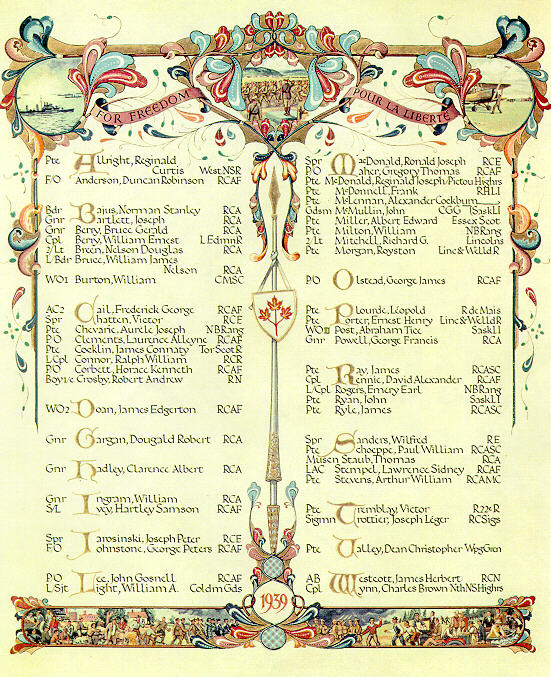 FOR FREEDOM
POUR LA LIBERTÉ
Pte Allright, Reginald
Curtis West NSR
F/O Anderson, Duncan Robinson RCAF
Bdr Bajus, Norman Stanley RCA
Gnr Bartlett, Joseph RCA
Gnr Berry, Bruce Gerald RCA
Cpl Berry, William Ernest L EdmnR
2/Lt Breen, Nelson Douglas RCA
L/Bdr Bruce, William James
Nelson RCA
WO1 Burton, William CMSC
AC2 Cail, Frederick George RCAF
Spr Chatten, Victor RCE
Pte Chevarie, Aurele Joseph NB Rang
P/O Clements, Laurence Alleyne RCAF
Pte Cocklin, James Connaty Tor Scot R
L/Cpl Connor, Ralph William RCR
P/O Corbett, Horace Kenneth RCAF
Boy1/c Crosby, Robert Andrew RN
WO2 Doan, James Edgerton RCAF
Gnr Gargan, Dougald Robert RCA
Gnr Hadley, Clarence Albert RCA
Gnr Ingram, William RCA
S/L Ivey, Hartley Samson RCAF
Spr Jarosinski, Joseph Peter RCE
F/O Johnstone, George Peters RCAF
P/O Lee, John Gosnell RCAF
L/Sjt Light, William A. Coldm Gds
Spr MacDonald, Ronald Joseph RCE
P/O Maher, Gregory Thomas RCAF
Pte McDonald, Reginald Joseph Pictou Highrs
Pte McDonnell, Frank RHLI
Pte McLennan, Alexander Cockburn
Gdsm McMullin, John CGG [Sask LI
Pte Miller, Albert Edward Essex Scot
Pte Milton, William NB Rang
2/Lt Mitchell, Richard G. Lincolns
Pte Morgan, Royston Linc & Welld R
P/O Olstead, George James RCAF
Pte Plourde, Léopold R de Mais
Pte Porter, Ernest Henry Linc & Welld R
WOIII Post, Abraham Tice Sask LI
Gnr Powell, George Francis RCA
Pte Ray, James RCASC
Cpl Rennie, David Alexander RCAF
L/Cpl Rogers, Emery Earl NB Rang
Pte Ryan, John Sask LI
Pte Ryle, James RCASC
Spr Sanders, Wilfred RE
Pte Schoeppe, Paul William RCASC
Musen Staub, Thomas RCA
LAC Stempel, Lawrence Sidney RCAF
Pte Stevens, Arthur William RCAMC
Pte Tremblay, Victor R22eR
Sigmn Trottier, Joseph Léger RC Sigs
Pte Valley, Dean Christopher Wpg Gren
AB Westcott, James Herbert RCN
Cpl Wynn, Charles Brown Nth NS Highrs
1939